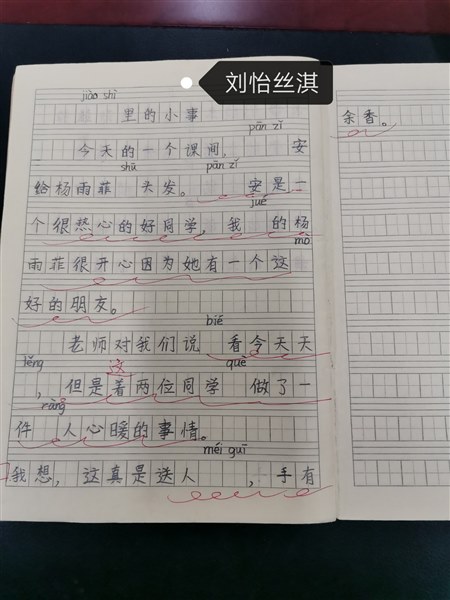 刘怡丝淇
jiào shì
里的小事
pān zǐ
今天的一个课间， 安
shū pān zǐ
给杨雨菲 头发。 安是一
jué
个很热心的好同学，我 的杨
mò
雨菲很开心因为她有一个这
好的朋友。
bié
老师对我们说 看今天天
lěng 这 què
，但是着两位同学 做了一
ràng
件 人心暖的事情。
méi guī
我想，这真是送人 ，手有
余香。